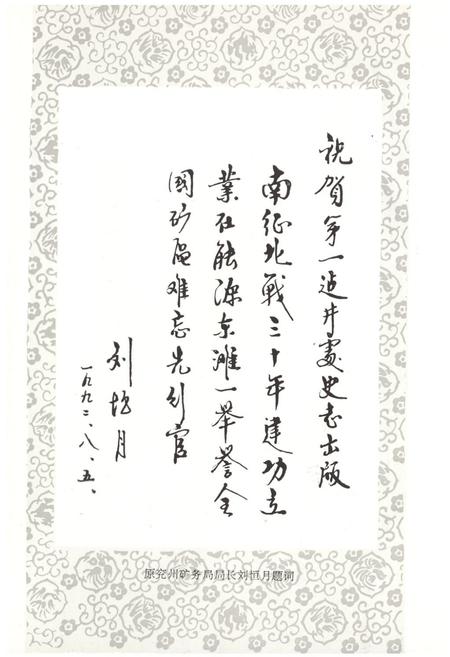 祝贺第一凿井處史志出版
南征北戰三十年建功立
業在能源东滩一举誉全
國矿區难忘先行官
刘恒月
一九九二、八、五、
原兖州矿务局局长刘恒月题词